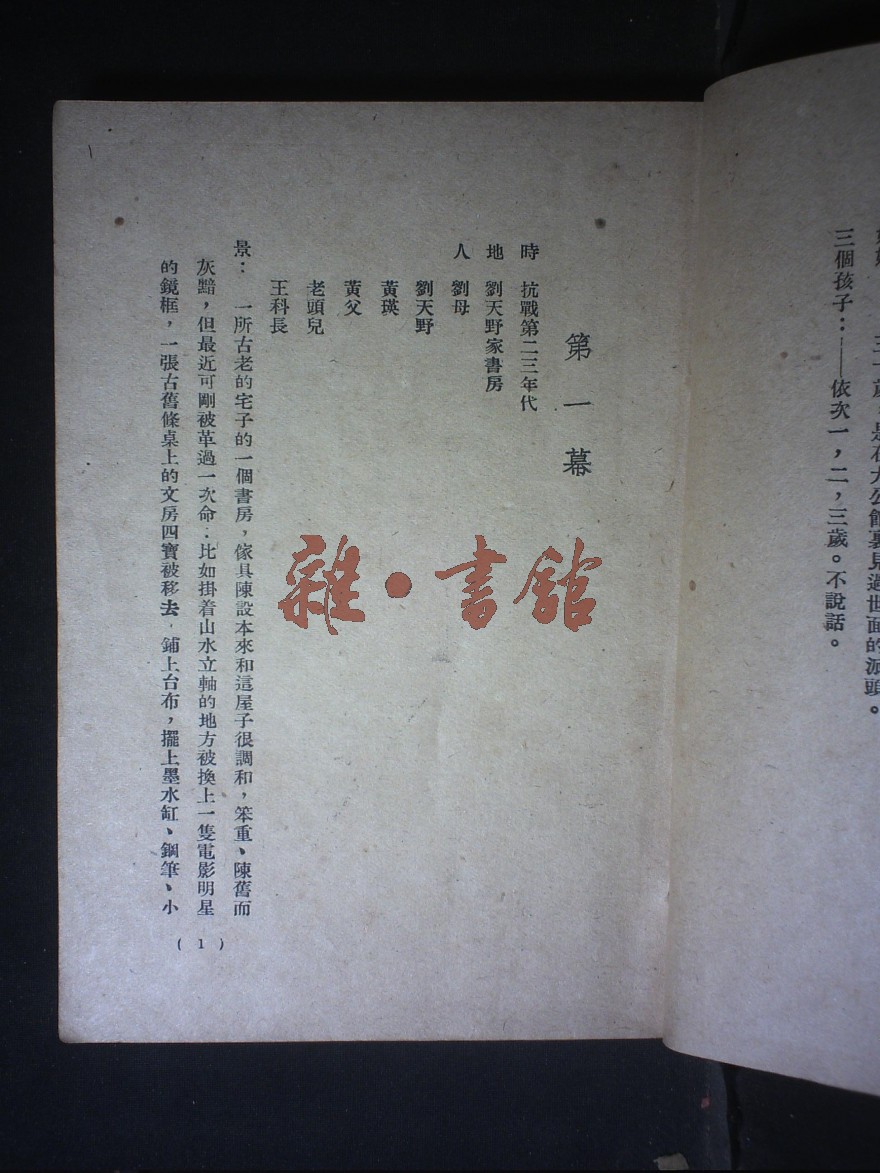 三十歲，是在大公館裏見過世面的派頭。
三個孩子：——依次一，二，三歲。不說話。
第一幕
時　抗戰第二三年代
地　劉天野家書房
人　劉母
劉天野
黃瑛
黃父
老頭兒
王科長
景：　一所古老的宅子的一個書房，傢具陳設本來和這屋子很調和，笨重、陳舊而
灰黯，但最近可剛被革過一次命：比如掛着山水立軸的地方被換上一隻電影明星
的鏡框，一張古舊條桌上的文房四寶被移去，鋪上台布，擺上墨水缸、鋼筆、小
(1)
雜·書館